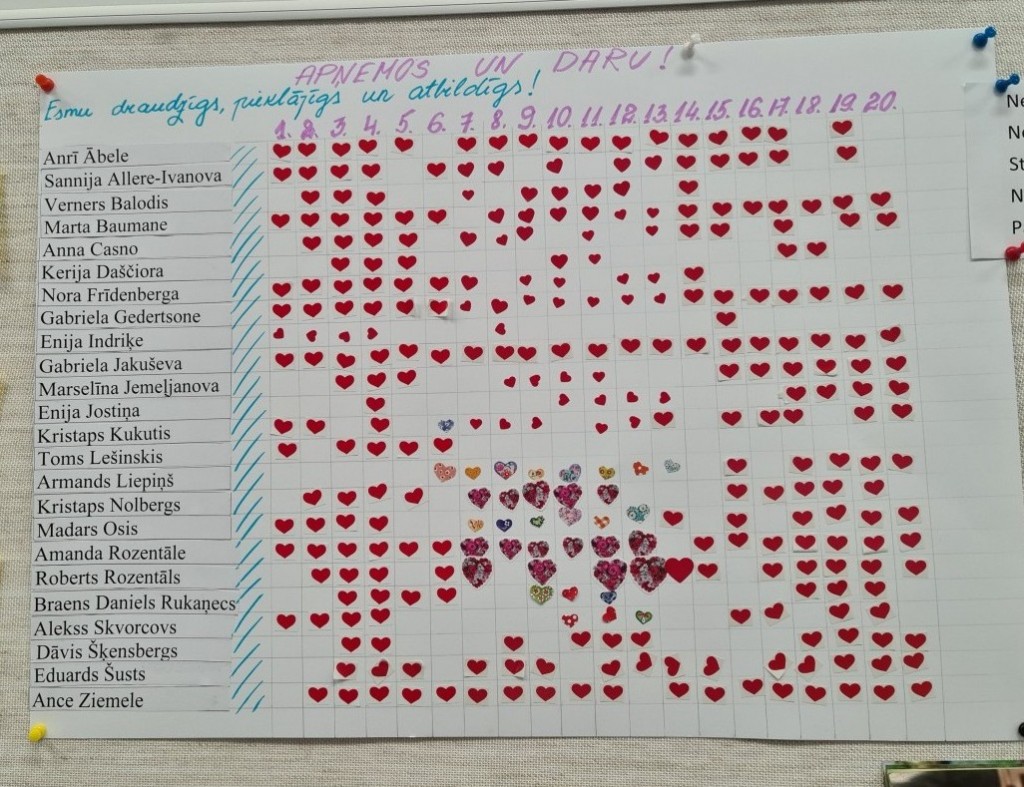 APŅEMOS UN DARU!
Esmu draudzīgs, pieklājīgs un atbildīgs!
1. 2. 3. 4. 5. 6. 7. 8. 9. 10. 11. 12. 13. 14. 15. 16. 17. 18. 19. 20.
Anrī Ābele
Sannija Allere-Ivanova
Verners Balodis
Marta Baumane
Anna Casno
Kerija Daščiora
Nora Frīdenberga
Gabriela Gedertsone
Enija Indriķe
Gabriela Jakuševa
Marselīna Jemeļjanova
Enija Jostiņa
Kristaps Kukutis
Toms Lešinskis
Armands Liepiņš
Kristaps Nolbergs
Madars Osis
Amanda Rozentāle
Roberts Rozentāls
Braens Daniels Rukaņecs
Alekss Skvorcovs
Dāvis Šķensbergs
Eduards Šusts
Ance Ziemele